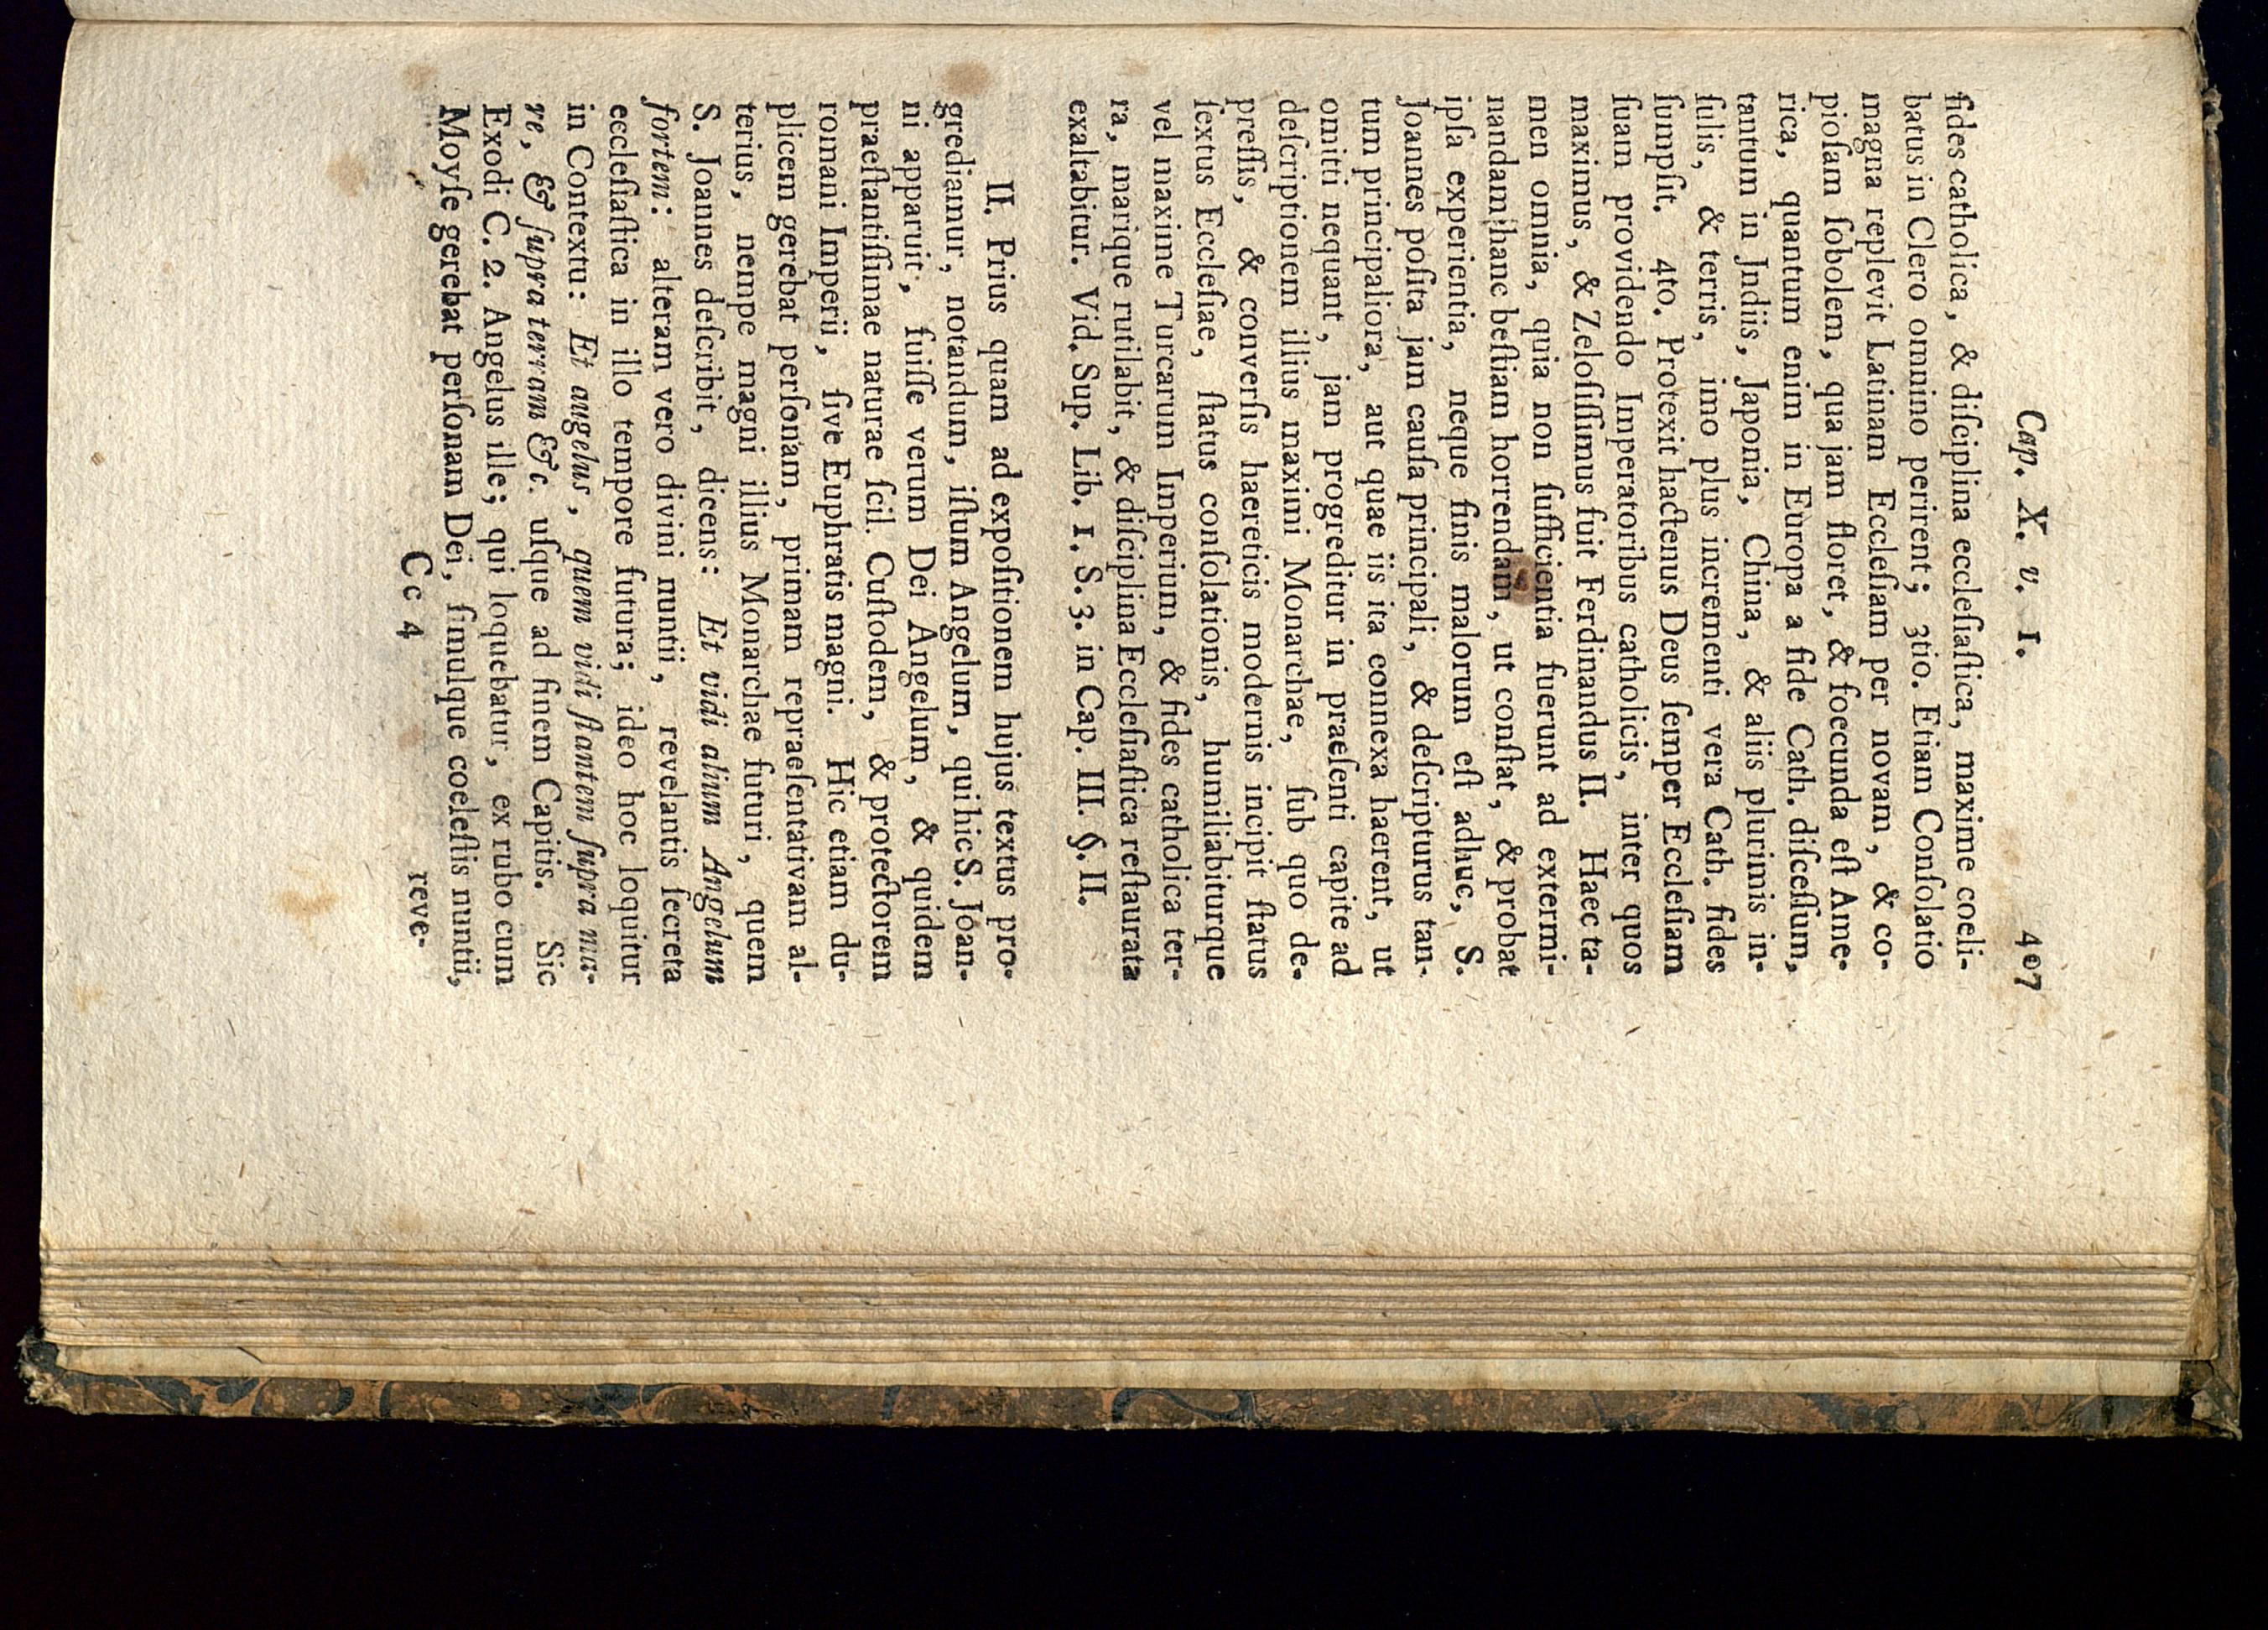 Cap. X. v. 1. 407
fides catholica, & diſciplina eccleſiaſtica, maxime coeli-
batus in Clero omnino perirent; 3tio. Etiam Conſolatio
magna replevit Latinam Eccleſiam per novam, & co-
pioſam ſobolem, qua jam floret, & foecunda eſt Ame-
rica, quantum enim in Europa a fide Cath. diſceſſum,
tantum in Jndiis, Japonia, China, & aliis plurimis in-
ſulis, & terris, imo plus incrementi vera Cath. fides
ſumpſit. 4to. Protexit hactenus Deus ſemper Eccleſiam
ſuam providendo Imperatoribus catholicis, inter quos
maximus, & Zeloſiſſimus fuit Ferdinandus II. Haec ta-
men omnia, quia non ſufficientia fuerunt ad extermi-
nandam hanc beſtiam horrendam, ut conſtat, & probat
ipſa experientia, neque finis malorum eſt adhuc, S.
Joannes poſita jam cauſa principali, & deſcripturus tan-
tum principaliora, aut quae iis ita connexa haerent, ut
omitti nequant, jam progreditur in praeſenti capite ad
deſcriptionem illius maximi Monarchae, ſub quo de-
preſſis, & converſis haereticis modernis incipit ſtatus
ſextus Eccleſiae, ſtatus conſolationis, humiliabiturque
vel maxime Turcarum Imperium, & fides catholica ter-
ra, marique rutilabit, & diſciplina Eccleſiaſtica reſtaurata
exaltabitur. Vid. Sup. Lib. 1. S. 3. in Cap. III. §. II.
II. Prius quam ad expoſitionem hujus textus pro-
grediamur, notandum, iſtum Angelum, qui hic S. Joan-
ni apparuit, fuiſſe verum Dei Angelum, & quidem
praeſtantiſſimae naturae ſcil. Cuſtodem, & protectorem
romani Imperii, ſive Euphratis magni. Hic etiam du-
plicem gerebat perſonam, primam repraeſentativam al-
terius, nempe magni illius Monarchae futuri, quem
S. Joannes deſcribit, dicens: Et vidi alium Angelum
fortem: alteram vero divini nuntii, revelantis ſecreta
eccleſiaſtica in illo tempore futura; ideo hoc loquitur
in Contextu: Et angelus, quem vidi ſtantem ſupra ma-
re, & ſupra terram &c. uſque ad finem Capitis. Sic
Exodi C. 2. Angelus ille; qui loquebatur, ex rubo cum
Moyſe gerebat perſonam Dei, ſimulque coeleſtis nuntii,
Cc 4 reve-